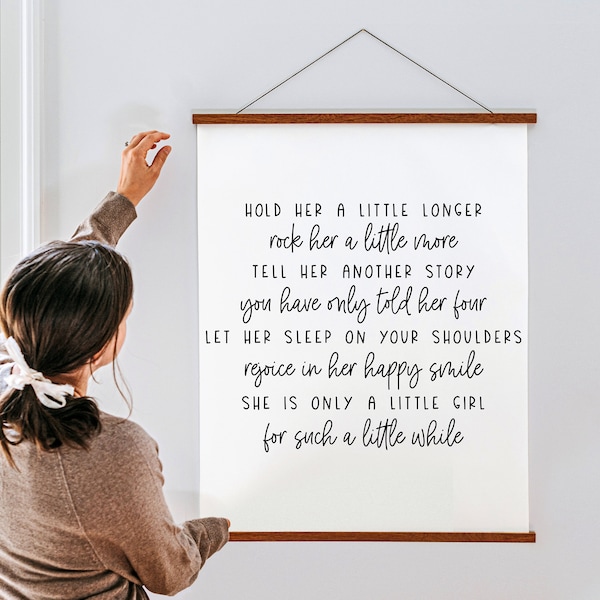 HOLD HER A LITTLE LONGER
rock her a little more
TELL HER ANOTHER STORY
you have only told her four
LET HER SLEEP ON YOUR SHOULDERS
rejoice in her happy smile
SHE IS ONLY A LITTLE GIRL
for such a little while